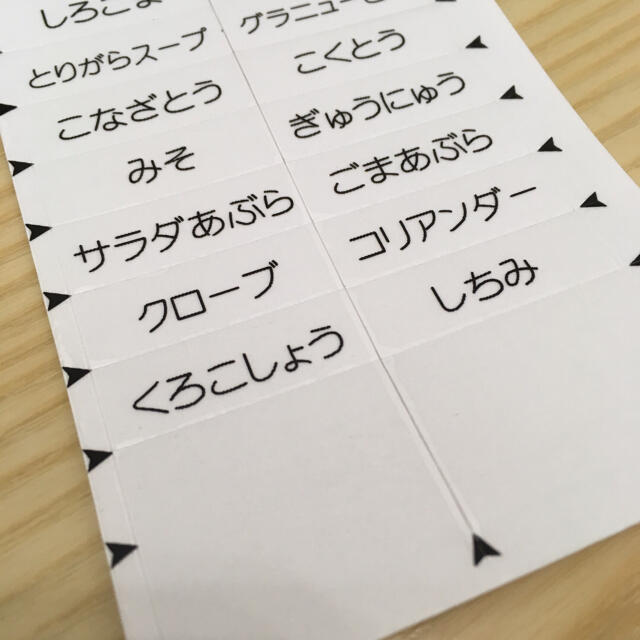 とりがらスープ
こくとう
こなざとう
ぎゅうにゅう
みそ
ごまあぶら
サラダあぶら
コリアンダー
クローブ
しちみ
くろこしょう